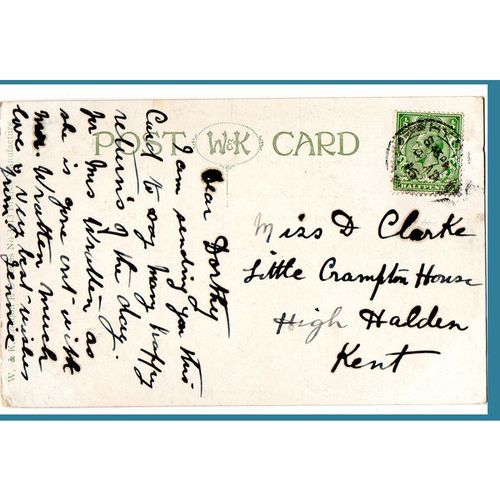 POST W&K CARD
HALFPENNY
Dear Dorothy
I am sending you this
Card to say many happy
returns of the day.
for Mrs Wratten as
she is gone out with
Mr. Wratten much
love & very best wishes
from Jennie
Miss D Clarke
Little Crampton House
High Halden
Kent